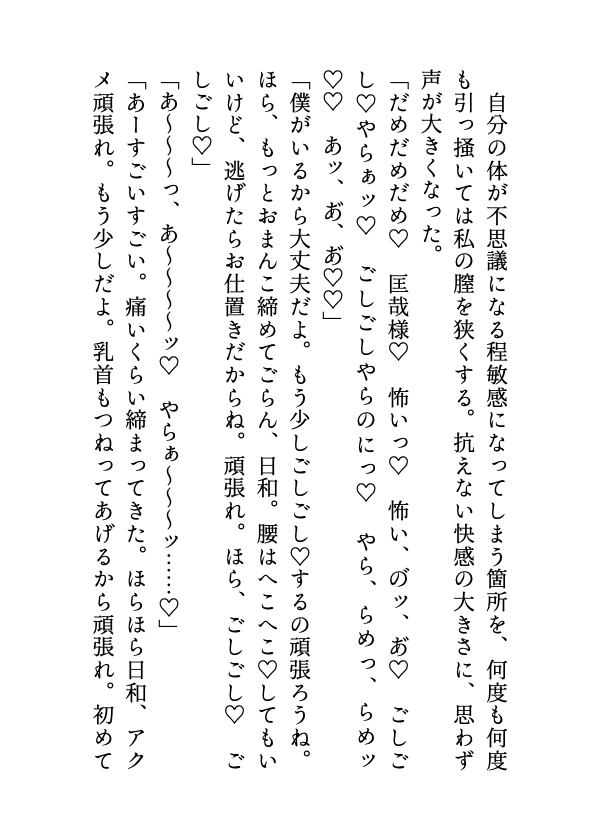 自分の体が不思議になる程敏感になってしまう箇所を、何度も何度
も引っ掻いては私の膣を狭くする。抗えない快感の大きさに、思わず
声が大きくなった。
「だめだめだめ♡　匡哉様♡　怖いっ♡　怖い、の゛ッ、あ゛♡　ごしご
し♡やらぁッ♡　ごしごしやらのにっ♡　やら、らめっ、らめッ
♡♡　あッ、あ゛、あ゛♡♡」
「僕がいるから大丈夫だよ。もう少しごしごし♡するの頑張ろうね。
ほら、もっとおまんこ締めてごらん、日和。腰はへこへこ♡してもい
いけど、逃げたらお仕置きだからね。頑張れ。ほら、ごしごし♡　ご
しごし♡」
「あ～～～っ、あ～～～～ッ♡　やらぁ～～～ッ……♡」
「あーすごいすごい。痛いくらい締まってきた。ほらほら日和、アク
メ頑張れ。もう少しだよ。乳首もつねってあげるから頑張れ。初めて